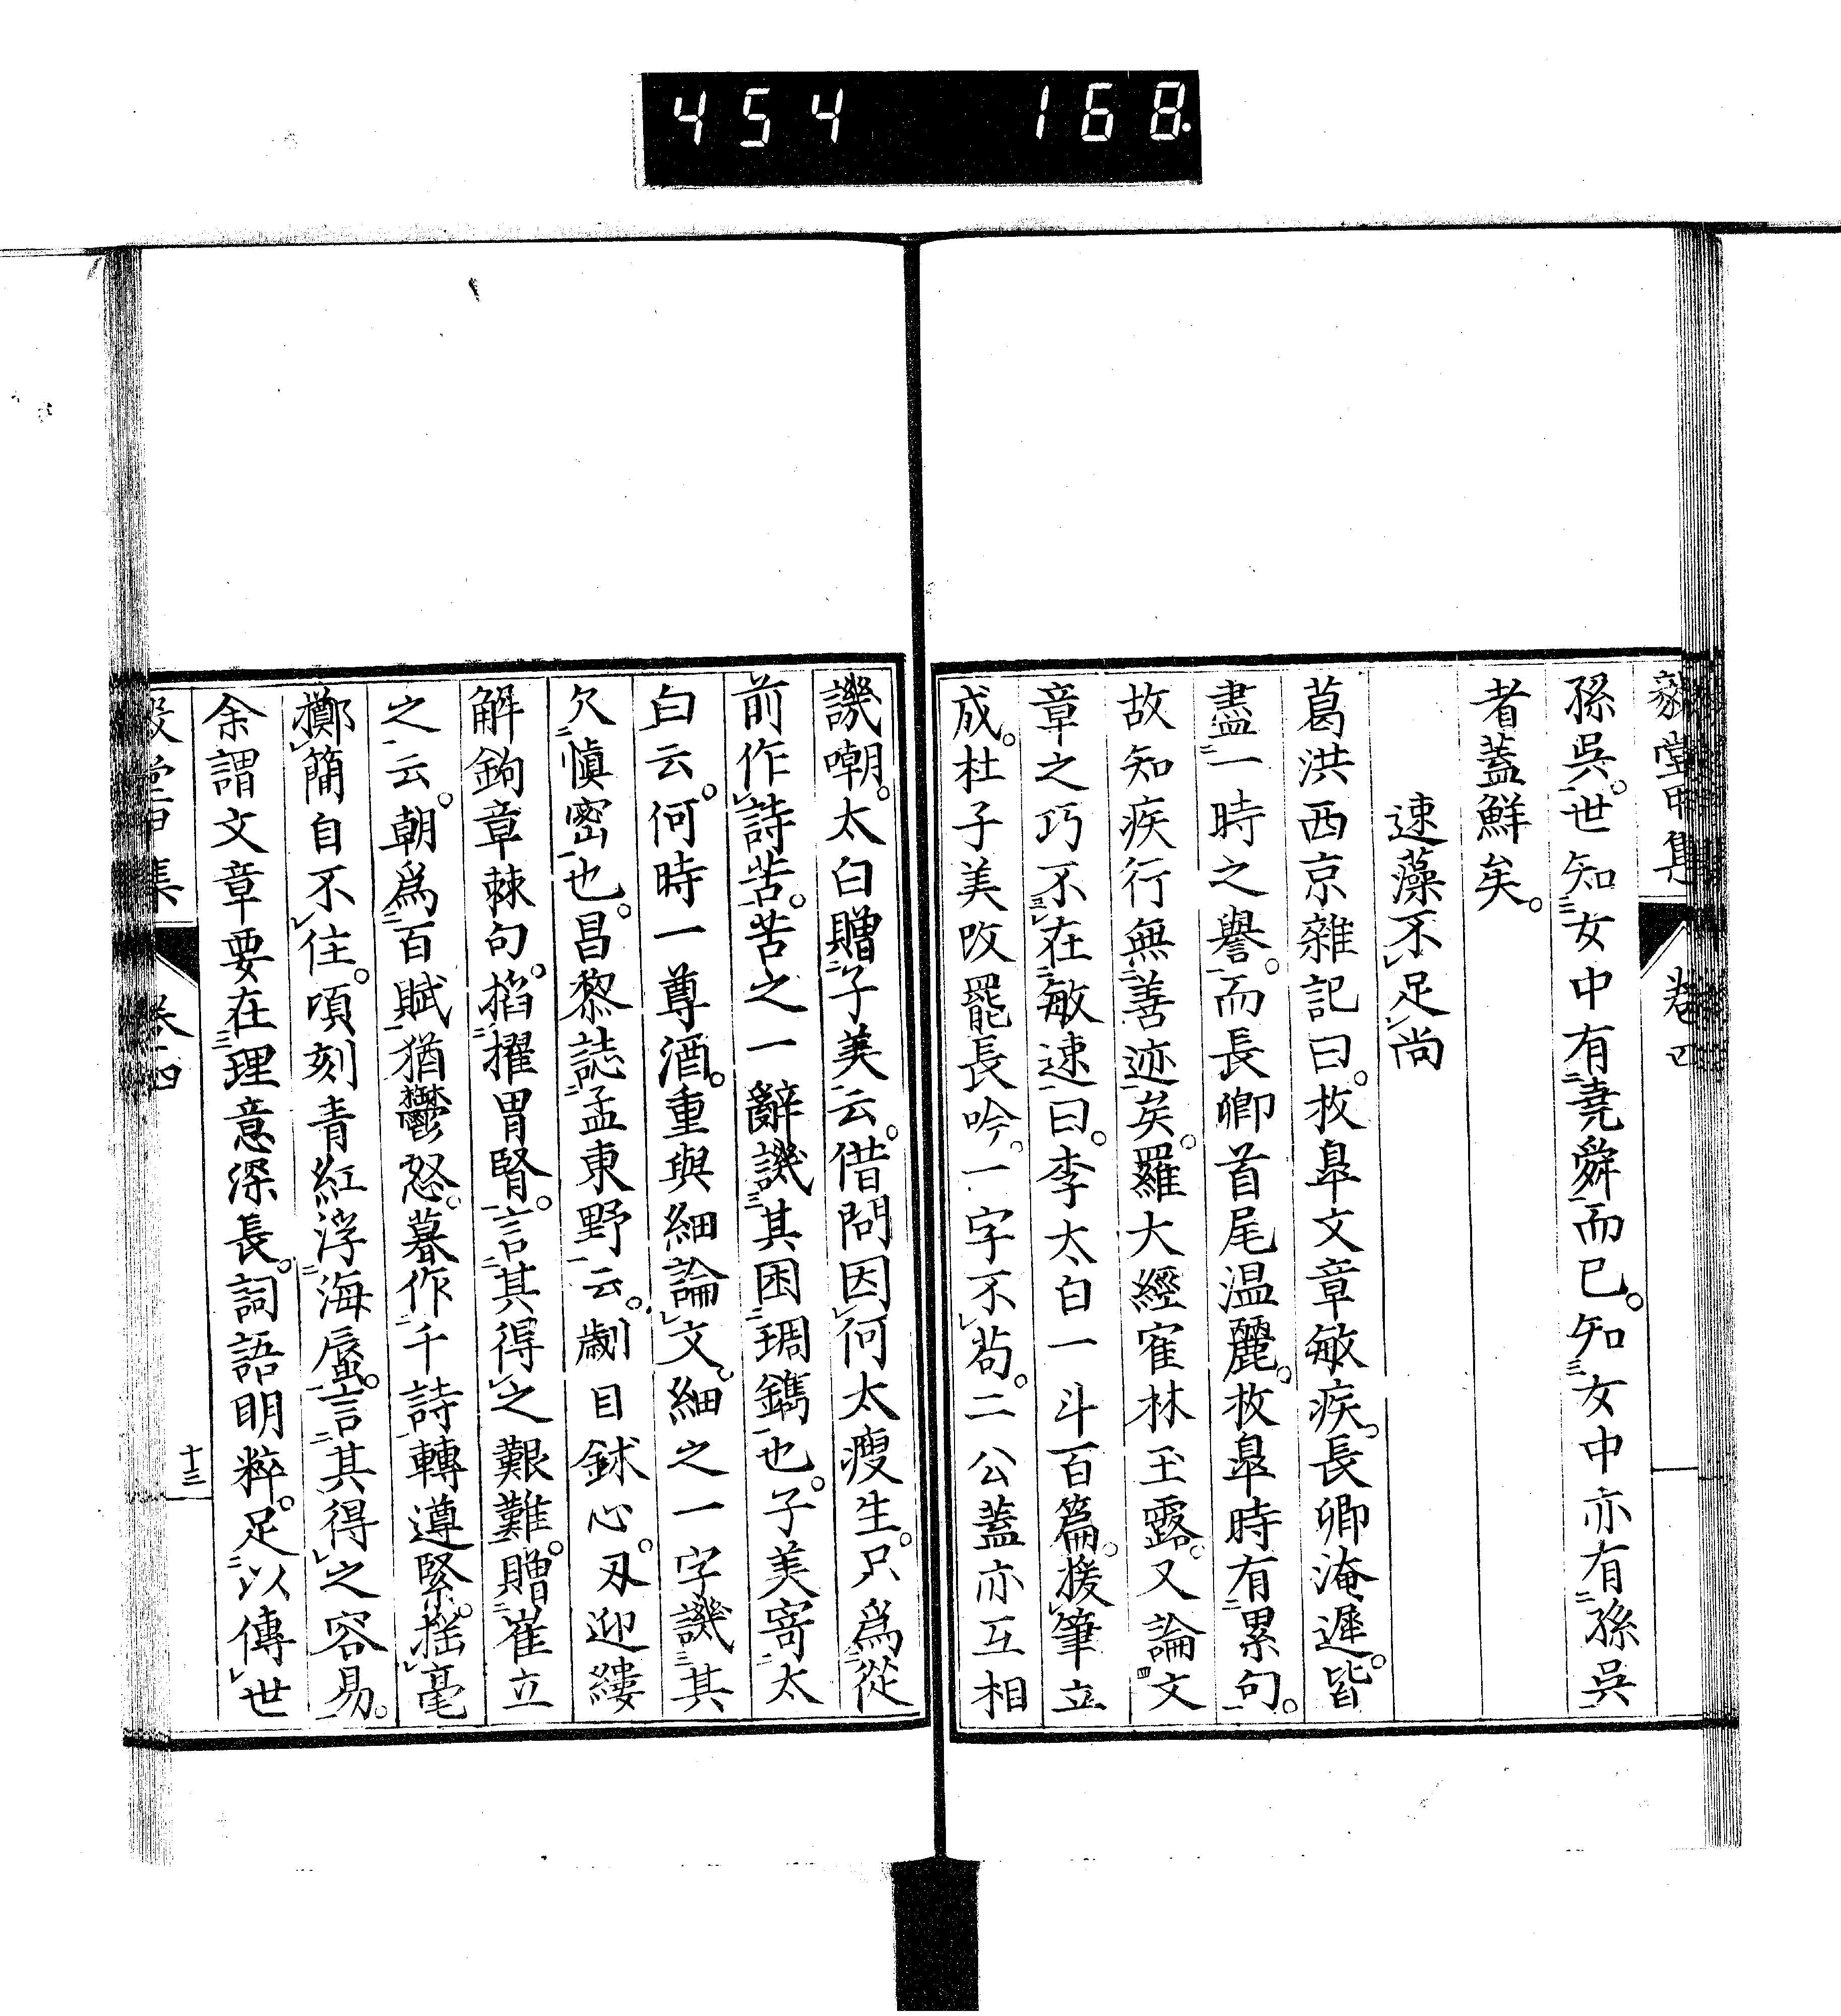 454 168
毅堂甲集 卷四
孫吳。世知女中有堯舜而已。知女中亦有孫吳
者蓋鮮矣。
速藻不足尚
葛洪西京雜記曰。枚皐文章敏疾。長卿淹遲。皆
盡一時之譽。而長卿首尾温麗。枚皐時有累句。
故知疾行無善迹矣。羅大經寉林玉露。又論文
章之巧不在敏速曰。李太白一斗百篇。援筆立
成。杜子美改罷長吟。一字不苟。二公蓋亦互相
譏嘲。太白贈子美云。借問因何太瘦生。只爲從
前作詩苦。苦之一辭譏其困琱鐫也。子美寄太
白云。何時一尊酒。重與細論文。細之一字譏其
欠愼密也。昌黎誌孟東野云。劌目鉥心。刄迎縷
解鉤章棘句。搯擢胃腎。言其得之艱難。贈崔立
之云。朝爲百賦猶鬱怒。暮作千詩轉遒緊。搖毫
擲簡自不住。頃刻青紅浮海蜃。言其得之容易。
余謂文章要在理意深長。詞語明粹。足以傳世
毅堂甲集 卷四 十三